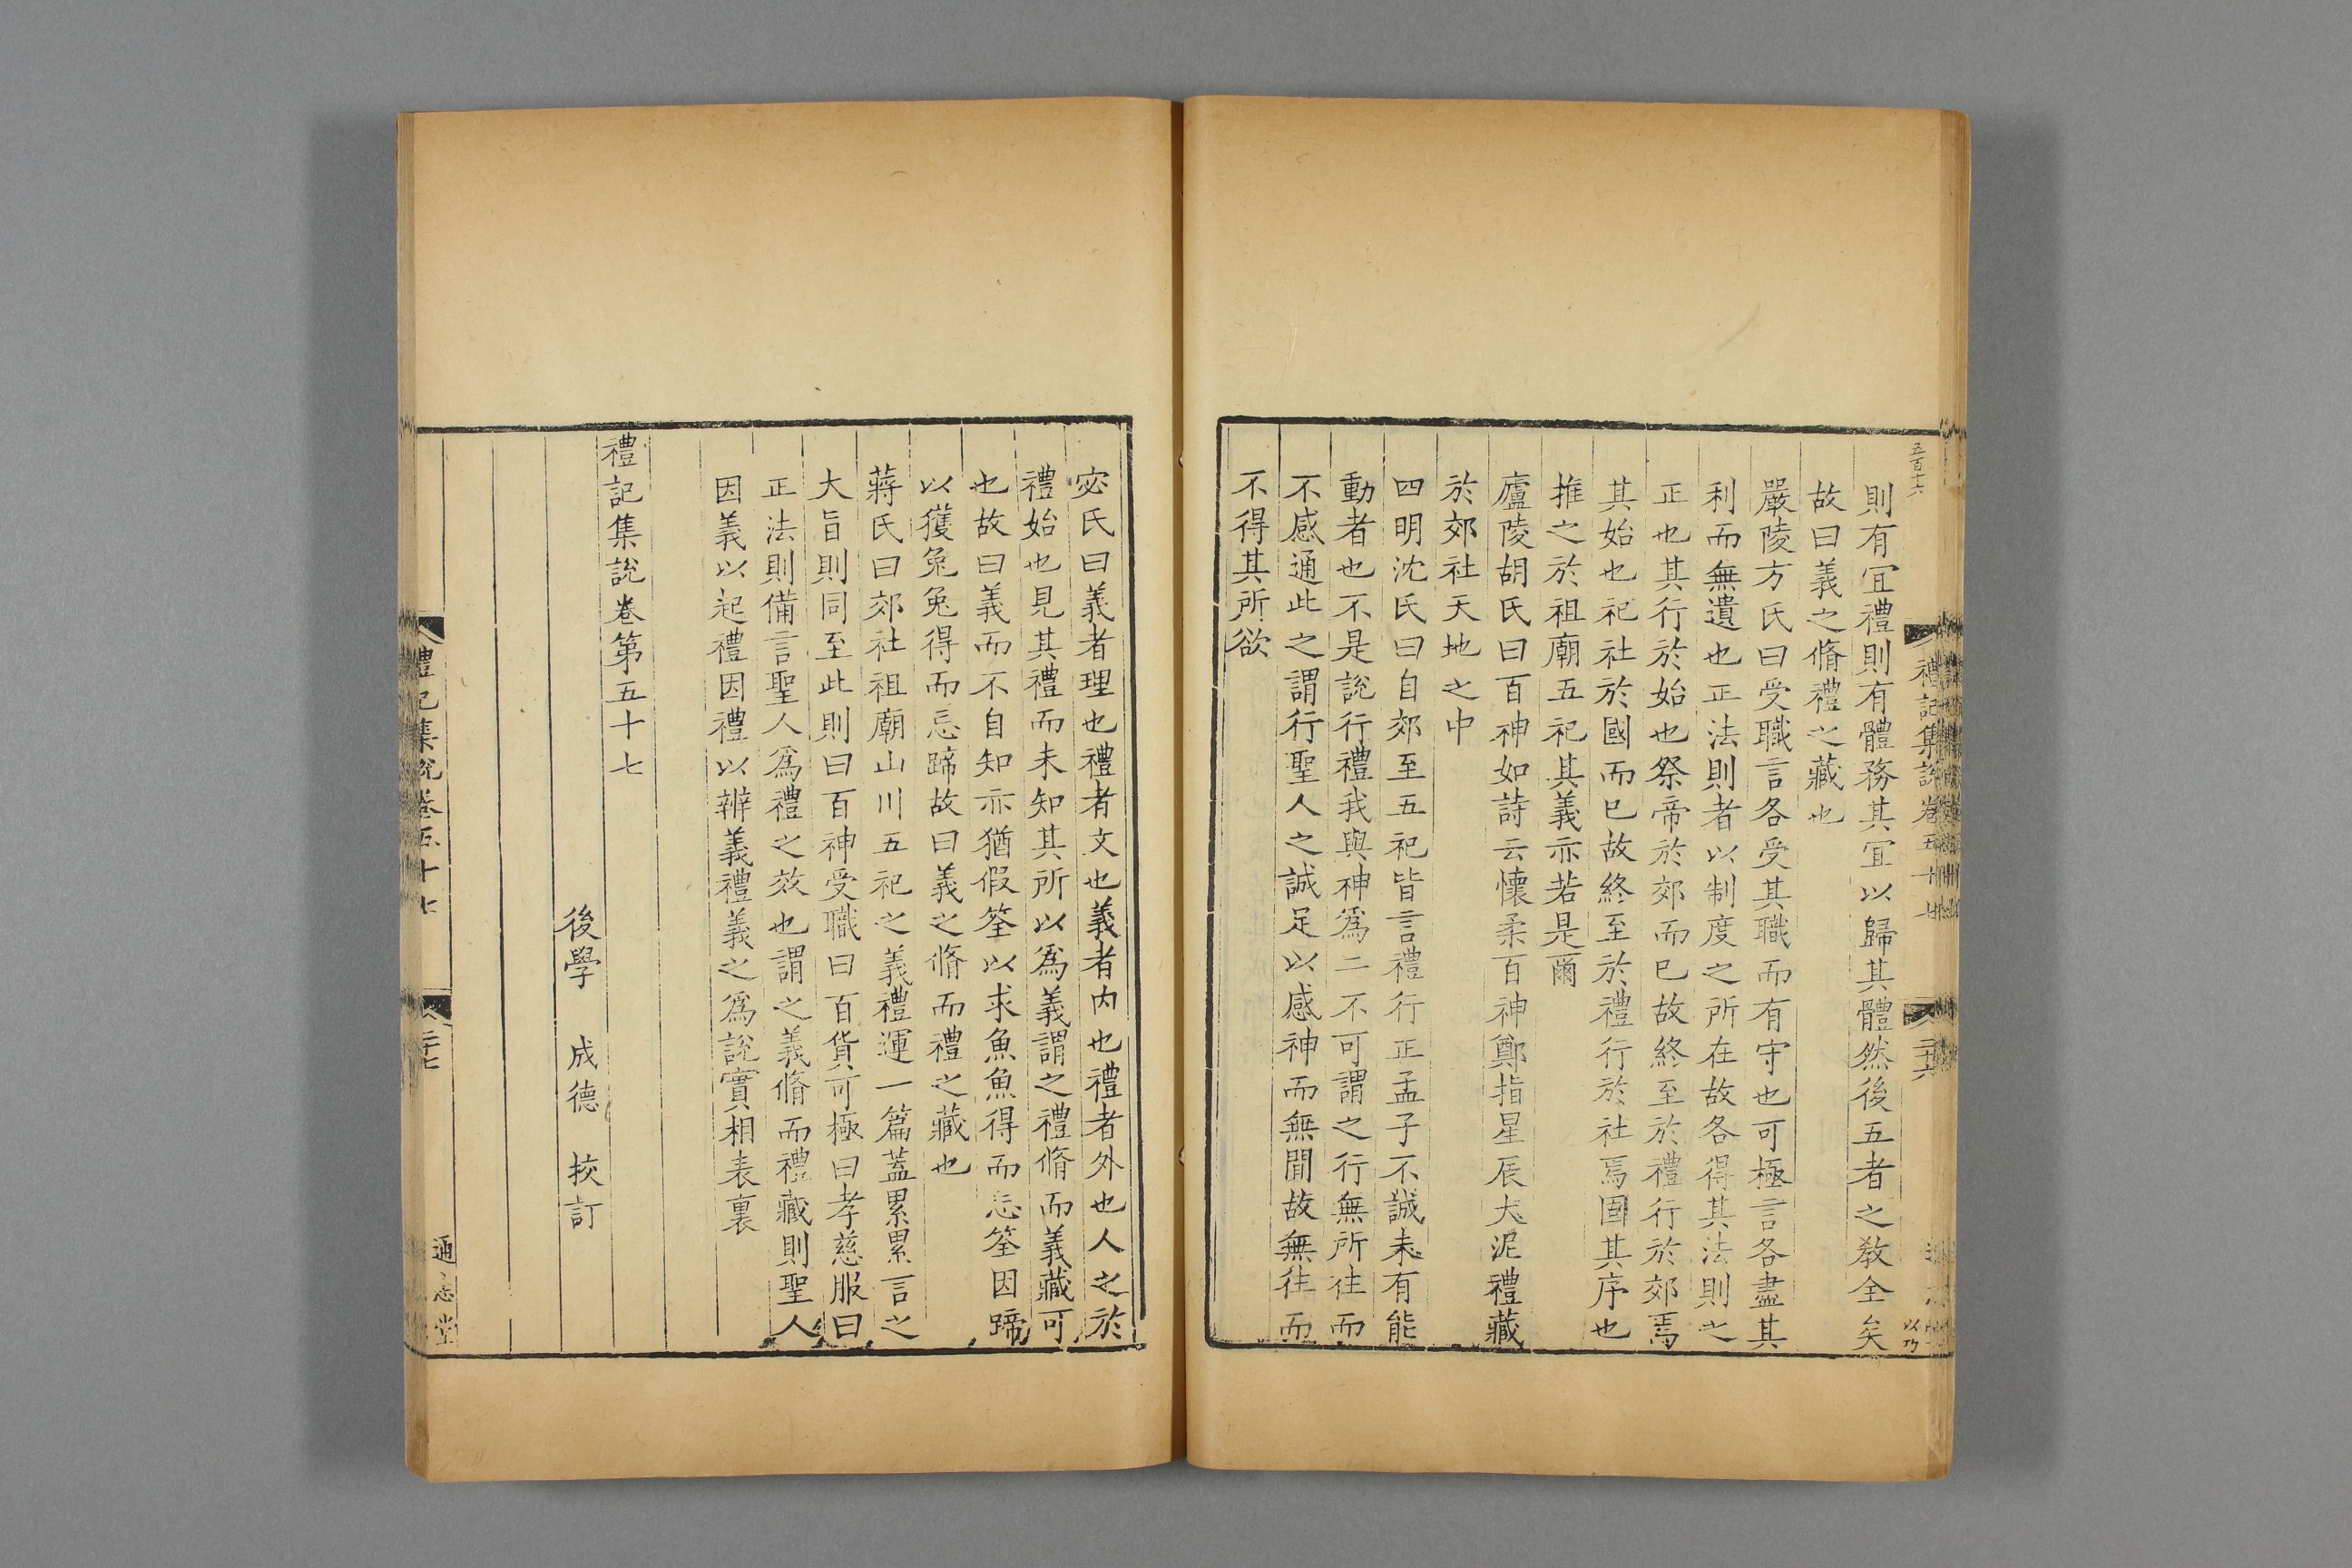 五百十六
禮記集說卷五十七
二十六
則有宜禮則有體務其宜以歸其體然後五者之敎全矣
故曰義之脩禮之藏也
嚴陵方氏曰受職言各受其職而有守也可極言各盡其
利而無遺也正法則者以制度之所在故各得其法則之
正也其行於始也祭帝於郊而巳故終至於禮行於郊焉
其始也祀社於國而巳故終至於禮行於社焉固其序也
推之於祖廟五祀其義亦若是爾
廬陵胡氏曰百神如詩云懷柔百神鄭指星辰大泥禮藏
於郊社天地之中
四明沈氏曰自郊至五祀皆言禮行正孟子不誠未有能
動者也不是說行禮我與神爲二不可謂之行無所往而
不感通此之謂行聖人之誠足以感神而無閒故無往而
不得其所欲
宓氏曰義者理也禮者文也義者内也禮者外也人之於
禮始也見其禮而未知其所以爲義謂之禮脩而義藏可
也故曰義而不自知亦猶假筌以求魚魚得而忘筌因蹄
以獲兔兔得而忘蹄故曰義之脩而禮之藏也
蔣氏曰郊社祖廟山川五祀之義禮運一篇蓋累累言之
大旨則同至此則曰百神受職曰百貨可極曰孝慈服曰
正法則備言聖人爲禮之效也謂之義脩而禮藏則聖人
因義以起禮因禮以辨義禮義之爲說實相表裏
禮記集說卷第五十七
後學 成德 挍訂
禮記集說卷五十七
二十七
通志堂